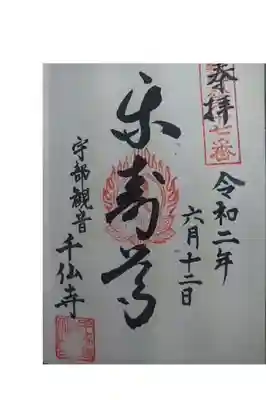 奉拝
七番
令和二年
六月十二日
楽寿尊
宇部観音
千仏寺